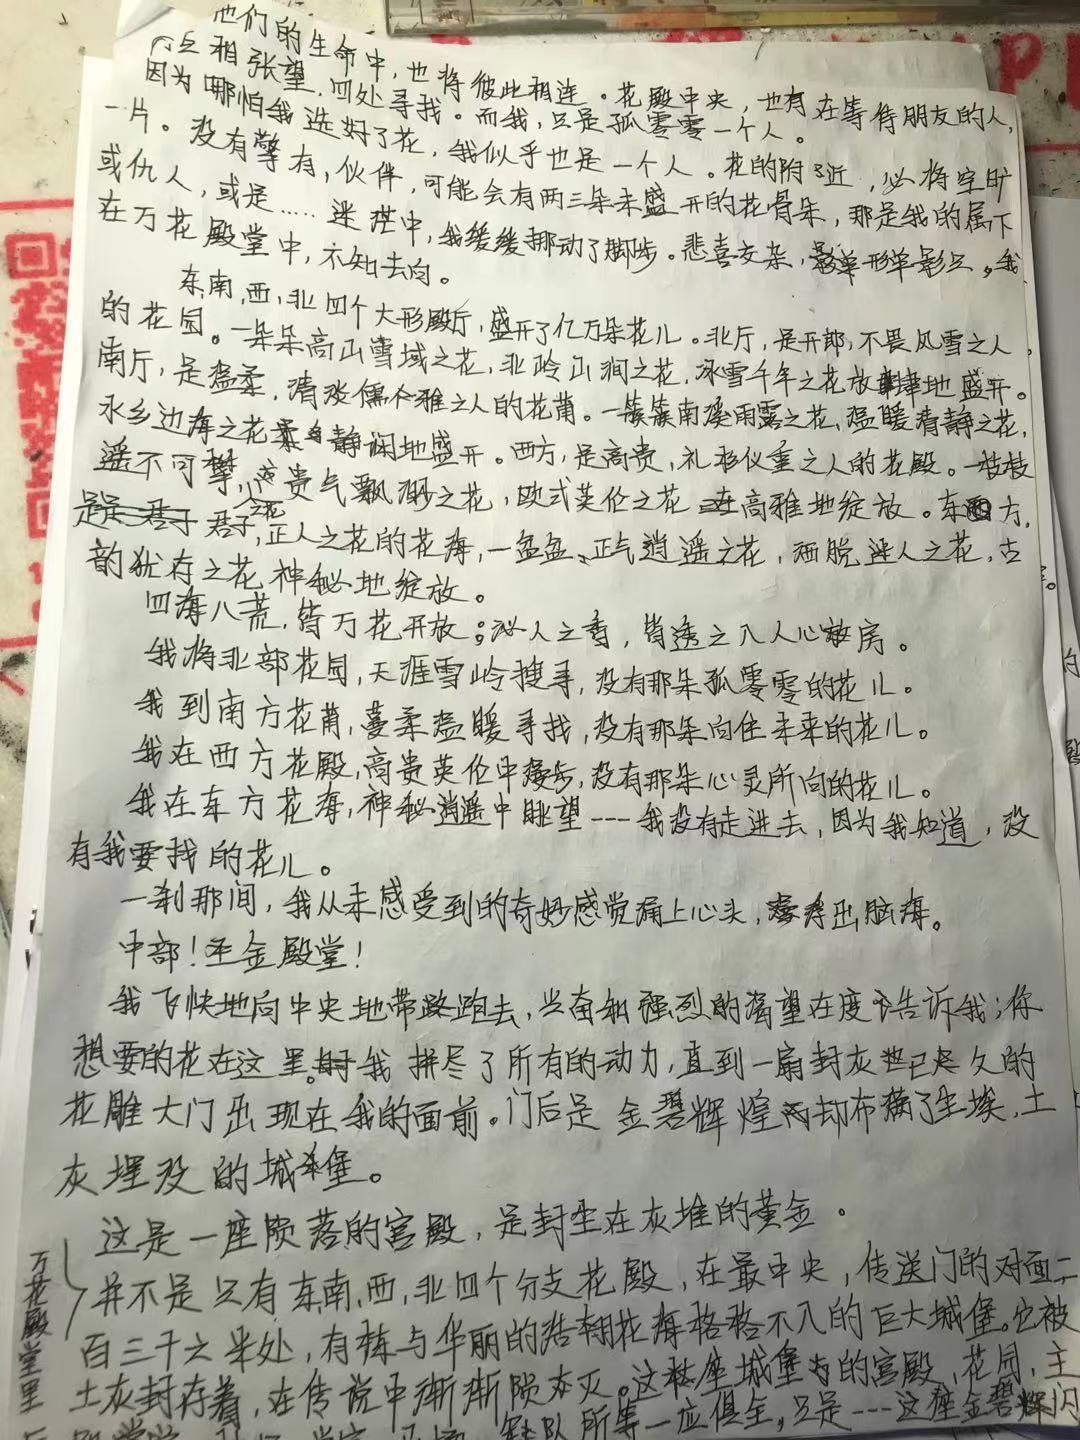 他们的生命中，也将彼此相连。花殿中央，也有在等待朋友的人，
互相张望，四处寻找。而我，只是孤零零一个人。
因为哪怕我选好了花，我似乎也是一个人。花的附近，必将空旷
一片。没有擎有，伙伴，可能会有两三朵未盛开的花骨朵，那是我的属下
或仇人，或是……迷茫中，我缓缓挪动了脚步。悲喜交杂，形单影只。我
在万花殿堂中，不知去向。
东，南，西，北四个大形殿厅，盛开了亿万朵花儿。北厅，是开郎，不畏风雪之人
的花园。一朵朵高山雪域之花，北岭山涧之花，冰雪千年之花放肆地盛开。
南厅，是温柔，清淡儒雅之人的花莆。一簇簇南溪雨露之花，温暖清静之花，
水乡边海之花静闲地盛开。西方，是高贵，礼貌仪重之人的花殿。一枝枝
遥不可攀，贵气飘渺之花，欧式英伦之花在高雅地绽放。东方，
是君子之花，正人之花的花海，一盆盆正气逍遥之花，洒脱迷人之花，古
韵犹存之花神秘地绽放。
四海八荒，皆万花开放；沁人之香，皆透之入人心房。
我将北部花园，天涯雪岭搜寻，没有那朵孤零零的花儿。
我到南方花莆，蔓柔温暖寻找，没有那朵向往未来的花儿。
我在西方花殿，高贵英伦中漫步，没有那朵心灵所向的花儿。
我在东方花海，神秘逍遥中眺望---我没有走进去，因为我知道，没
有我要找的花儿。
一刹那间，我从未感受到的奇妙感觉涌上心头，浮出脑海。
中部！至金殿堂！
我飞快地向中央地带跑去，兴奋和强烈的渴望在度告诉我；你
想要的花在这里。我拼尽了所有的动力，直到一扇封灰已久的
花雕大门出现在我的面前。门后是金碧辉煌却布满了尘埃，土
灰埋没的城堡。
这是一座陨落的宫殿，是封尘在灰堆的黄金。
并不是只有东，南，西，北四个分支花殿，在最中央，传送门的对面二
百三十六米处，有栋与华丽的花海格格不入的巨大城堡。它被
土灰封存着，在传说中渐渐陨灭。这座城堡的宫殿，花园，主
队所等一应俱全，只是---这座金碧辉闪
万花殿堂里